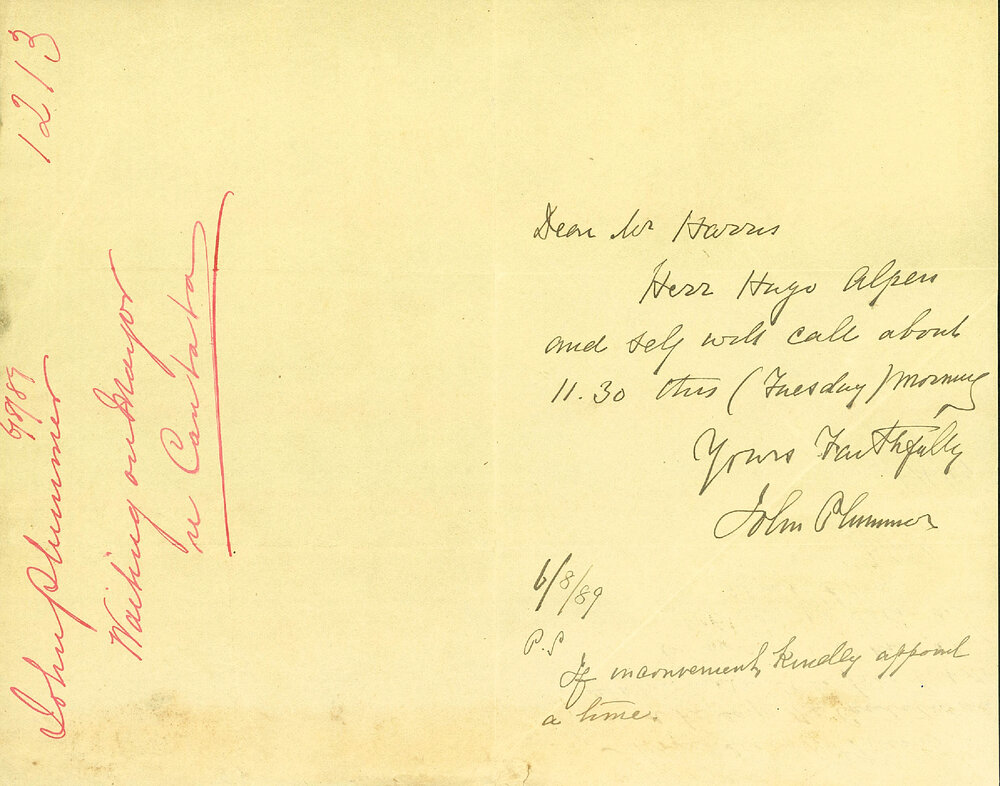 1213
John Plummer
6/8/89
Waiting on Mayor
re Cantata
Dear Mr Harris
Herr Hugo Alpen
and self will call about
11.30 this (Tuesday) morning
Yours Faithfully
John Plummer
6/8/89
P.S
If inconvenient, kindly appoint
a time.